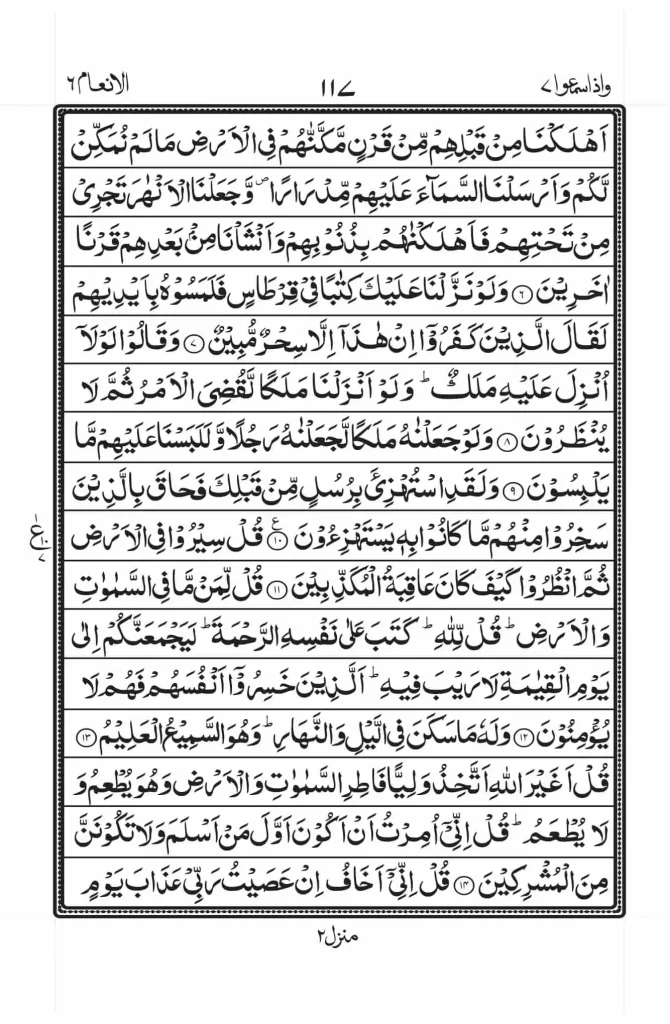 واذاسمعوا٧ ١١٧ الانعام٦
اَهْلَكْنَا مِنْ قَبْلِهِمْ مِّنْ قَرْنٍ مَّكَّنّٰهُمْ فِي الْاَرْضِ مَا لَمْ نُمَكِّنْ
لَّكُمْ وَاَرْسَلْنَا السَّمَآءَ عَلَيْهِمْ مِّدْرَارًا ۪ وَّجَعَلْنَا الْاَنْهٰرَ تَجْرِيْ
مِنْ تَحْتِهِمْ فَاَهْلَكْنٰهُمْ بِذُنُوْبِهِمْ وَاَنْشَاْنَا مِنْۢ بَعْدِهِمْ قَرْنًا
اٰخَرِيْنَ ۝٦ وَلَوْ نَزَّلْنَا عَلَيْكَ كِتٰبًا فِيْ قِرْطَاسٍ فَلَمَسُوْهُ بِاَيْدِيْهِمْ
لَقَالَ الَّذِيْنَ كَفَرُوْٓا اِنْ هٰذَآ اِلَّا سِحْرٌ مُّبِيْنٌ ۝٧ وَقَالُوْا لَوْلَآ
اُنْزِلَ عَلَيْهِ مَلَكٌ ؕ وَلَوْ اَنْزَلْنَا مَلَكًا لَّقُضِيَ الْاَمْرُ ثُمَّ لَا
يُنْظَرُوْنَ ۝٨ وَلَوْ جَعَلْنٰهُ مَلَكًا لَّجَعَلْنٰهُ رَجُلًا وَّلَلَبَسْنَا عَلَيْهِمْ مَّا
يَلْبِسُوْنَ ۝٩ وَلَقَدِ اسْتُهْزِئَ بِرُسُلٍ مِّنْ قَبْلِكَ فَحَاقَ بِالَّذِيْنَ
سَخِرُوْا مِنْهُمْ مَّا كَانُوْا بِهٖ يَسْتَهْزِءُوْنَ ۝١٠ قُلْ سِيْرُوْا فِي الْاَرْضِ
ثُمَّ انْظُرُوْا كَيْفَ كَانَ عَاقِبَةُ الْمُكَذِّبِيْنَ ۝١١ قُلْ لِّمَنْ مَّا فِي السَّمٰوٰتِ
وَالْاَرْضِ ؕ قُلْ لِّلّٰهِ ؕ كَتَبَ عَلٰى نَفْسِهِ الرَّحْمَةَ ؕ لَيَجْمَعَنَّكُمْ اِلٰى
يَوْمِ الْقِيٰمَةِ لَا رَيْبَ فِيْهِ ؕ اَلَّذِيْنَ خَسِرُوْٓا اَنْفُسَهُمْ فَهُمْ لَا
يُؤْمِنُوْنَ ۝١٢ وَلَهٗ مَا سَكَنَ فِي الَّيْلِ وَالنَّهَارِ ؕ وَهُوَ السَّمِيْعُ الْعَلِيْمُ ۝١٣
قُلْ اَغَيْرَ اللّٰهِ اَتَّخِذُ وَلِيًّا فَاطِرِ السَّمٰوٰتِ وَالْاَرْضِ وَهُوَ يُطْعِمُ وَ
لَا يُطْعَمُ ؕ قُلْ اِنِّيْٓ اُمِرْتُ اَنْ اَكُوْنَ اَوَّلَ مَنْ اَسْلَمَ وَلَا تَكُوْنَنَّ
مِنَ الْمُشْرِكِيْنَ ۝١٤ قُلْ اِنِّيْٓ اَخَافُ اِنْ عَصَيْتُ رَبِّيْ عَذَابَ يَوْمٍ
ع ١٠ ٧
منزل٢